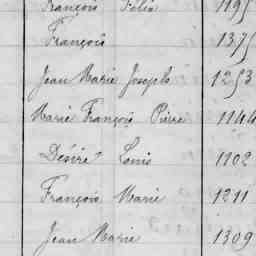 François Félix 1195
François 1375
Jean Marie Joseph 1253
Marie François Pierre 1144
Désiré Louis 1102
François Marie 1211
Jean Marie 1309